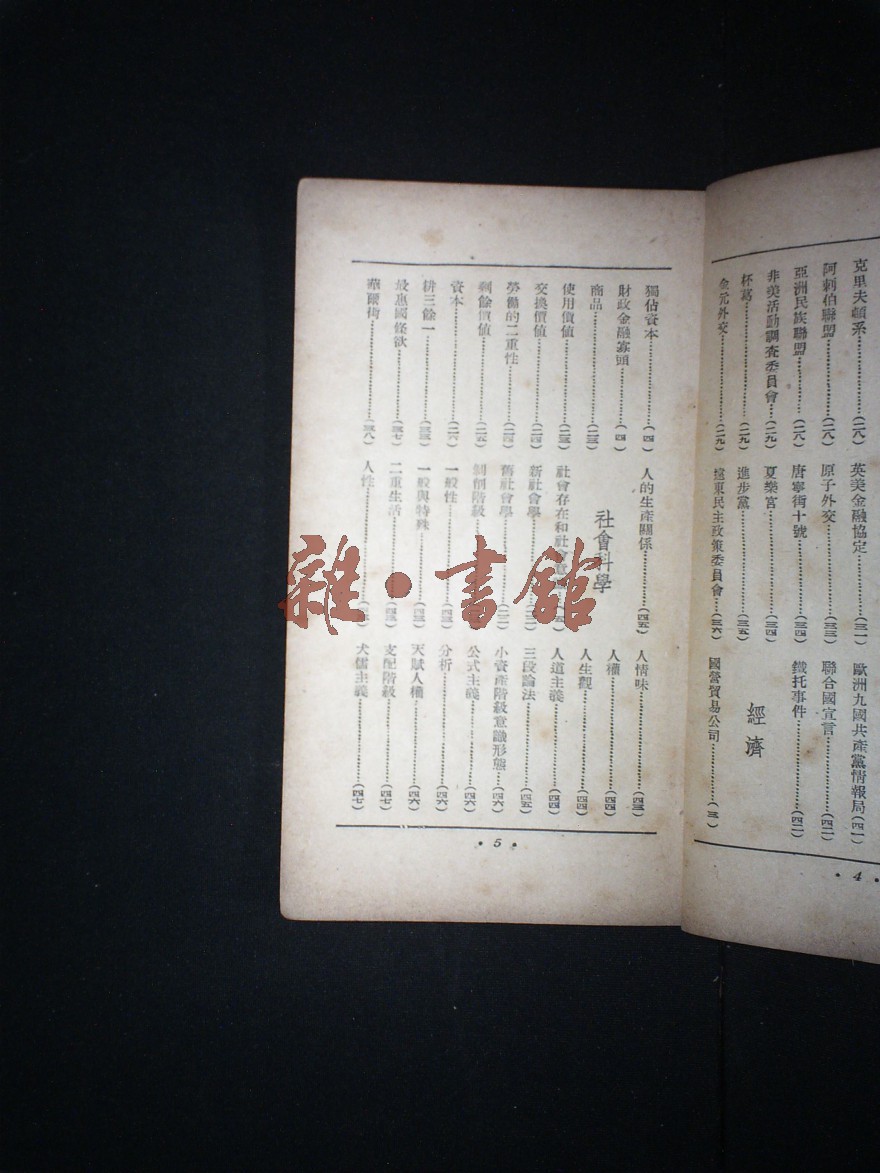 克里夫頓系(二八)
阿剌伯聯盟(二八)
亞洲民族聯盟(二八)
非美活動調查委員會(二九)
杯葛(二九)
金元外交(二九)
英美金融協定(三一)
原子外交(三三)
唐寧街十號(三四)
夏樂宮(三四)
進步黨(三五)
遠東民主政策委員會(三六)
歐洲九國共產黨情報局(四一)
聯合國宣言(四二)
鐵托事件(四二)
經濟
國營貿易公司(三)
• 4 •
獨佔資本(四)
財政金融寡頭(四)
商品(二三)
使用價值(二三)
交換價值(二四)
勞働的二重性(二四)
剩餘價值(二五)
資本(二六)
耕三餘一(三三)
最惠國條款(三七)
華爾街(三八)
人的生產關係(四五)
社會科學
社會存在和社會意
新社會學
舊社會學
剝削階級
一般性(四三)
一般與特殊(四三)
二重生活(四三)
人性
人情味(四三)
人權(四四)
人生觀(四四)
人道主義(四四)
三段論法(四五)
小資產階級意識形態(四六)
公式主義(四六)
分析(四六)
天賦人權(四六)
支配階級(四七)
犬儒主義(四七)
• 5 •
雜•書館